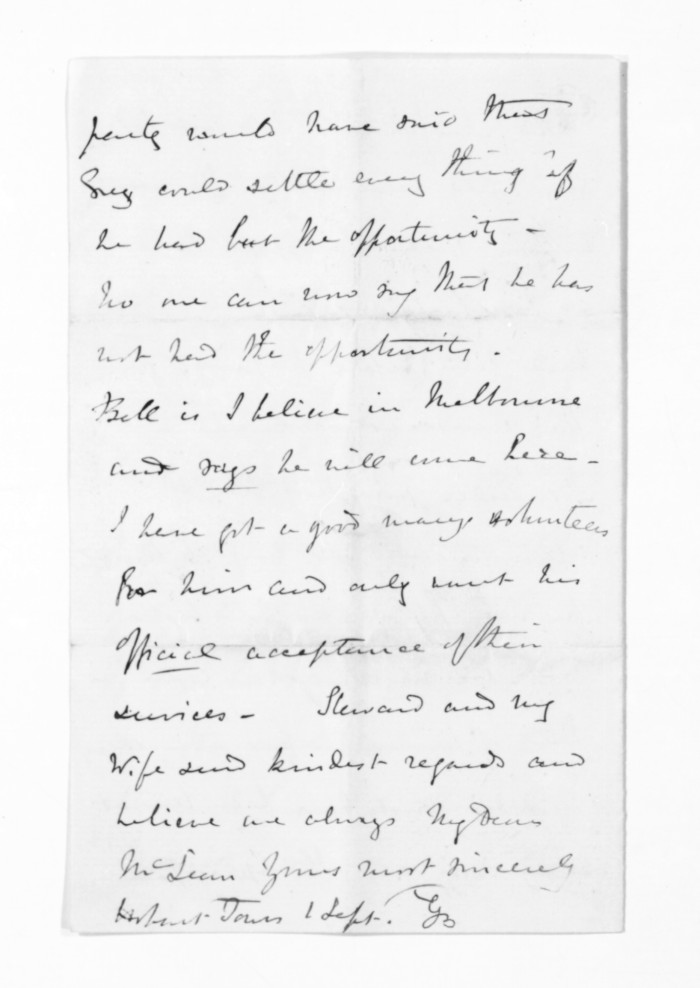 party would have said that
Grey could settle every thing if
he had but the opportunity -
No one can now say that he has
not had the opportunity.
Bell is I believe in Melbourne
and says he will come here -
I have got a good many volunteers
for him and only want his
official acceptance of their
services - Steward and my
Wife send kindest regards and
believe me always My Dear
McLean Yours most sincerely
Hobart Town 1 Sept.